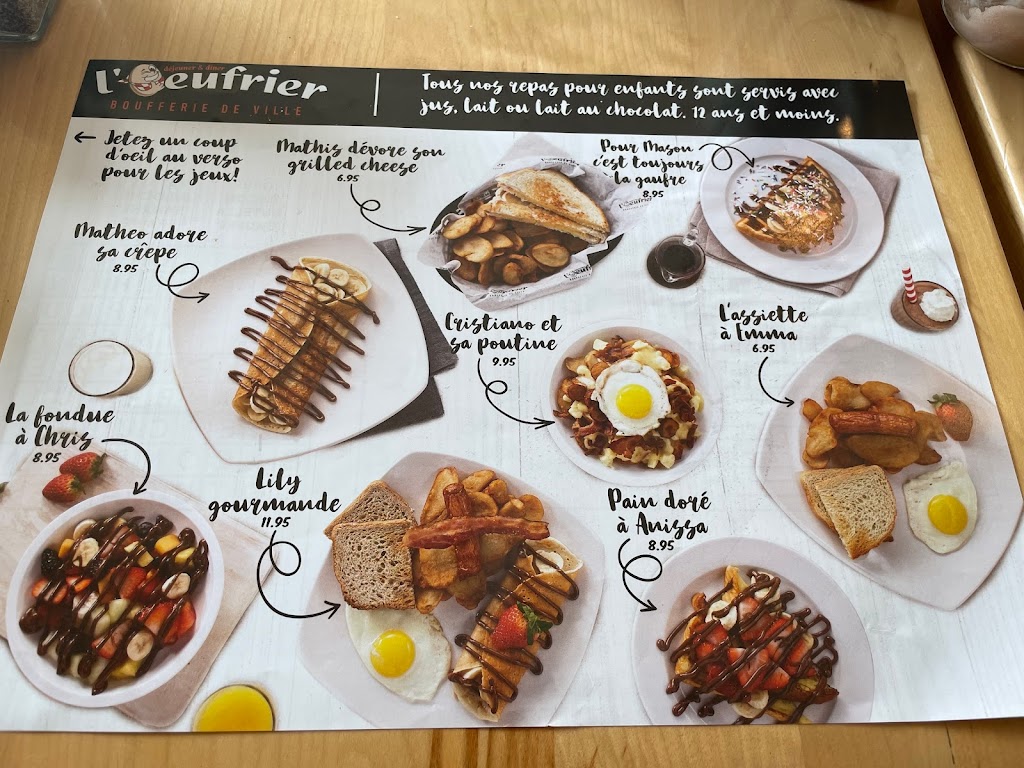 déjeuner & dîner
l'Oeufrier
BOUFFERIE DE VILLE
Tous nos repas pour enfants sont servis avec
jus, lait ou lait au chocolat. 12 ans et moins.
Jetez un coup
d'oeil au verso
pour les jeux!
Mathis dévore son
grilled cheese
6.95
Pour Mason
c'est toujours
la gaufre
8.95
Matheo adore
sa crêpe
8.95
Cristiano et
sa poutine
9.95
L'assiette
à Emma
6.95
La fondue
à Chris
8.95
Lily
gourmande
11.95
Pain doré
à Anissa
8.95
l'Oeufrier